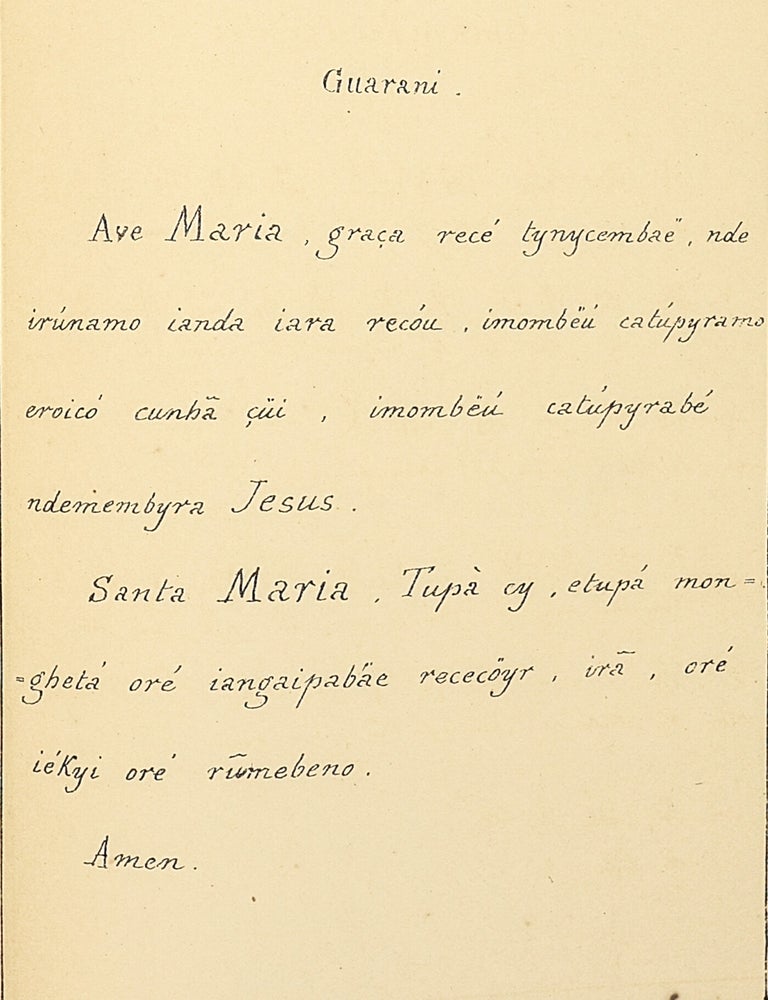 Guarani .
Ave Maria , graça recé tynycembaë , nde
irúnamo ianda iara recóu , imombëú catúpyramo
eroicó cunhã çüi , imombëú catúpyrabé
ndemembyra Jesus .
Santa Maria , Tupà cy , etupá mon=
=ghetá oré iangaipabäe rececöyr , irã , oré
iéKyi oré rũmebeno .
Amen .